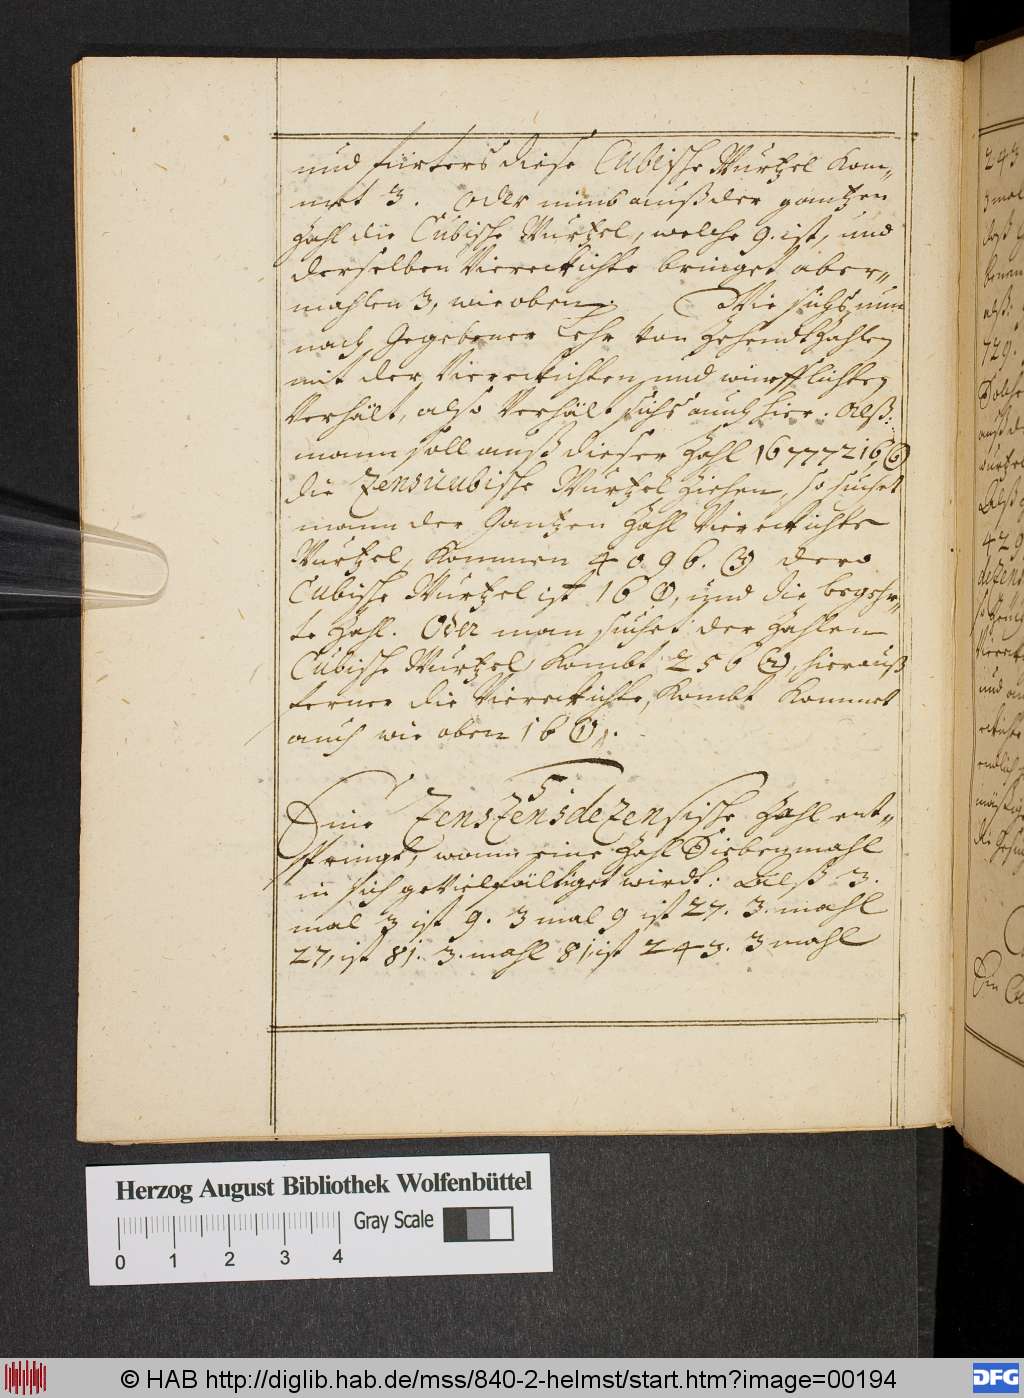 und fürters diese Cubische Wurtzel kom„
met 3. Oder nimb auß der gantzen
Zahl die Cubische Wurtzel, welche 9. ist, und
derselben Viereckichte bringet aber„
mahlen 3, wie oben. Wie sichs nun
nach Gegebener Lehr von Zehendt Zahlen
mit der Viereckichten und würfflichten
Verhält, also Verhält sichs auch hier: Alß:
mann soll auß dieser Zahl 16777216 ⑥
die Zensicubische Wurtzel Ziehen, so suchet
mann der Gantzen Zahl Viereckichte
Wurtzel, kommen 4096. ③ dero
Cubische Wurtzel ist 16 ①, und die begehr„
te Zahl. Oder man suchet der Zahlen
Cubische Wurtzel, kombt 256 ②, hierauß
ferner die Viereckichte, kombt kommet
auch wie oben 16 ①.
5
Eine Zenszensdezensische Zahl ent„
springt, wann eine Zahl Siebenmahl
in sich gevielfältiget wirdt: Alß 3.
mal 3 ist 9. 3 mal 9 ist 27. 3. mahl
27, ist 81. 3. mahl 81, ist 243. 3 mahl
243
3 mal
729.
429
Herzog August Bibliothek Wolfenbüttel
Gray Scale
0 1 2 3 4
© HAB http://diglib.hab.de/mss/840-2-helmst/start.htm?image=00194
DFG